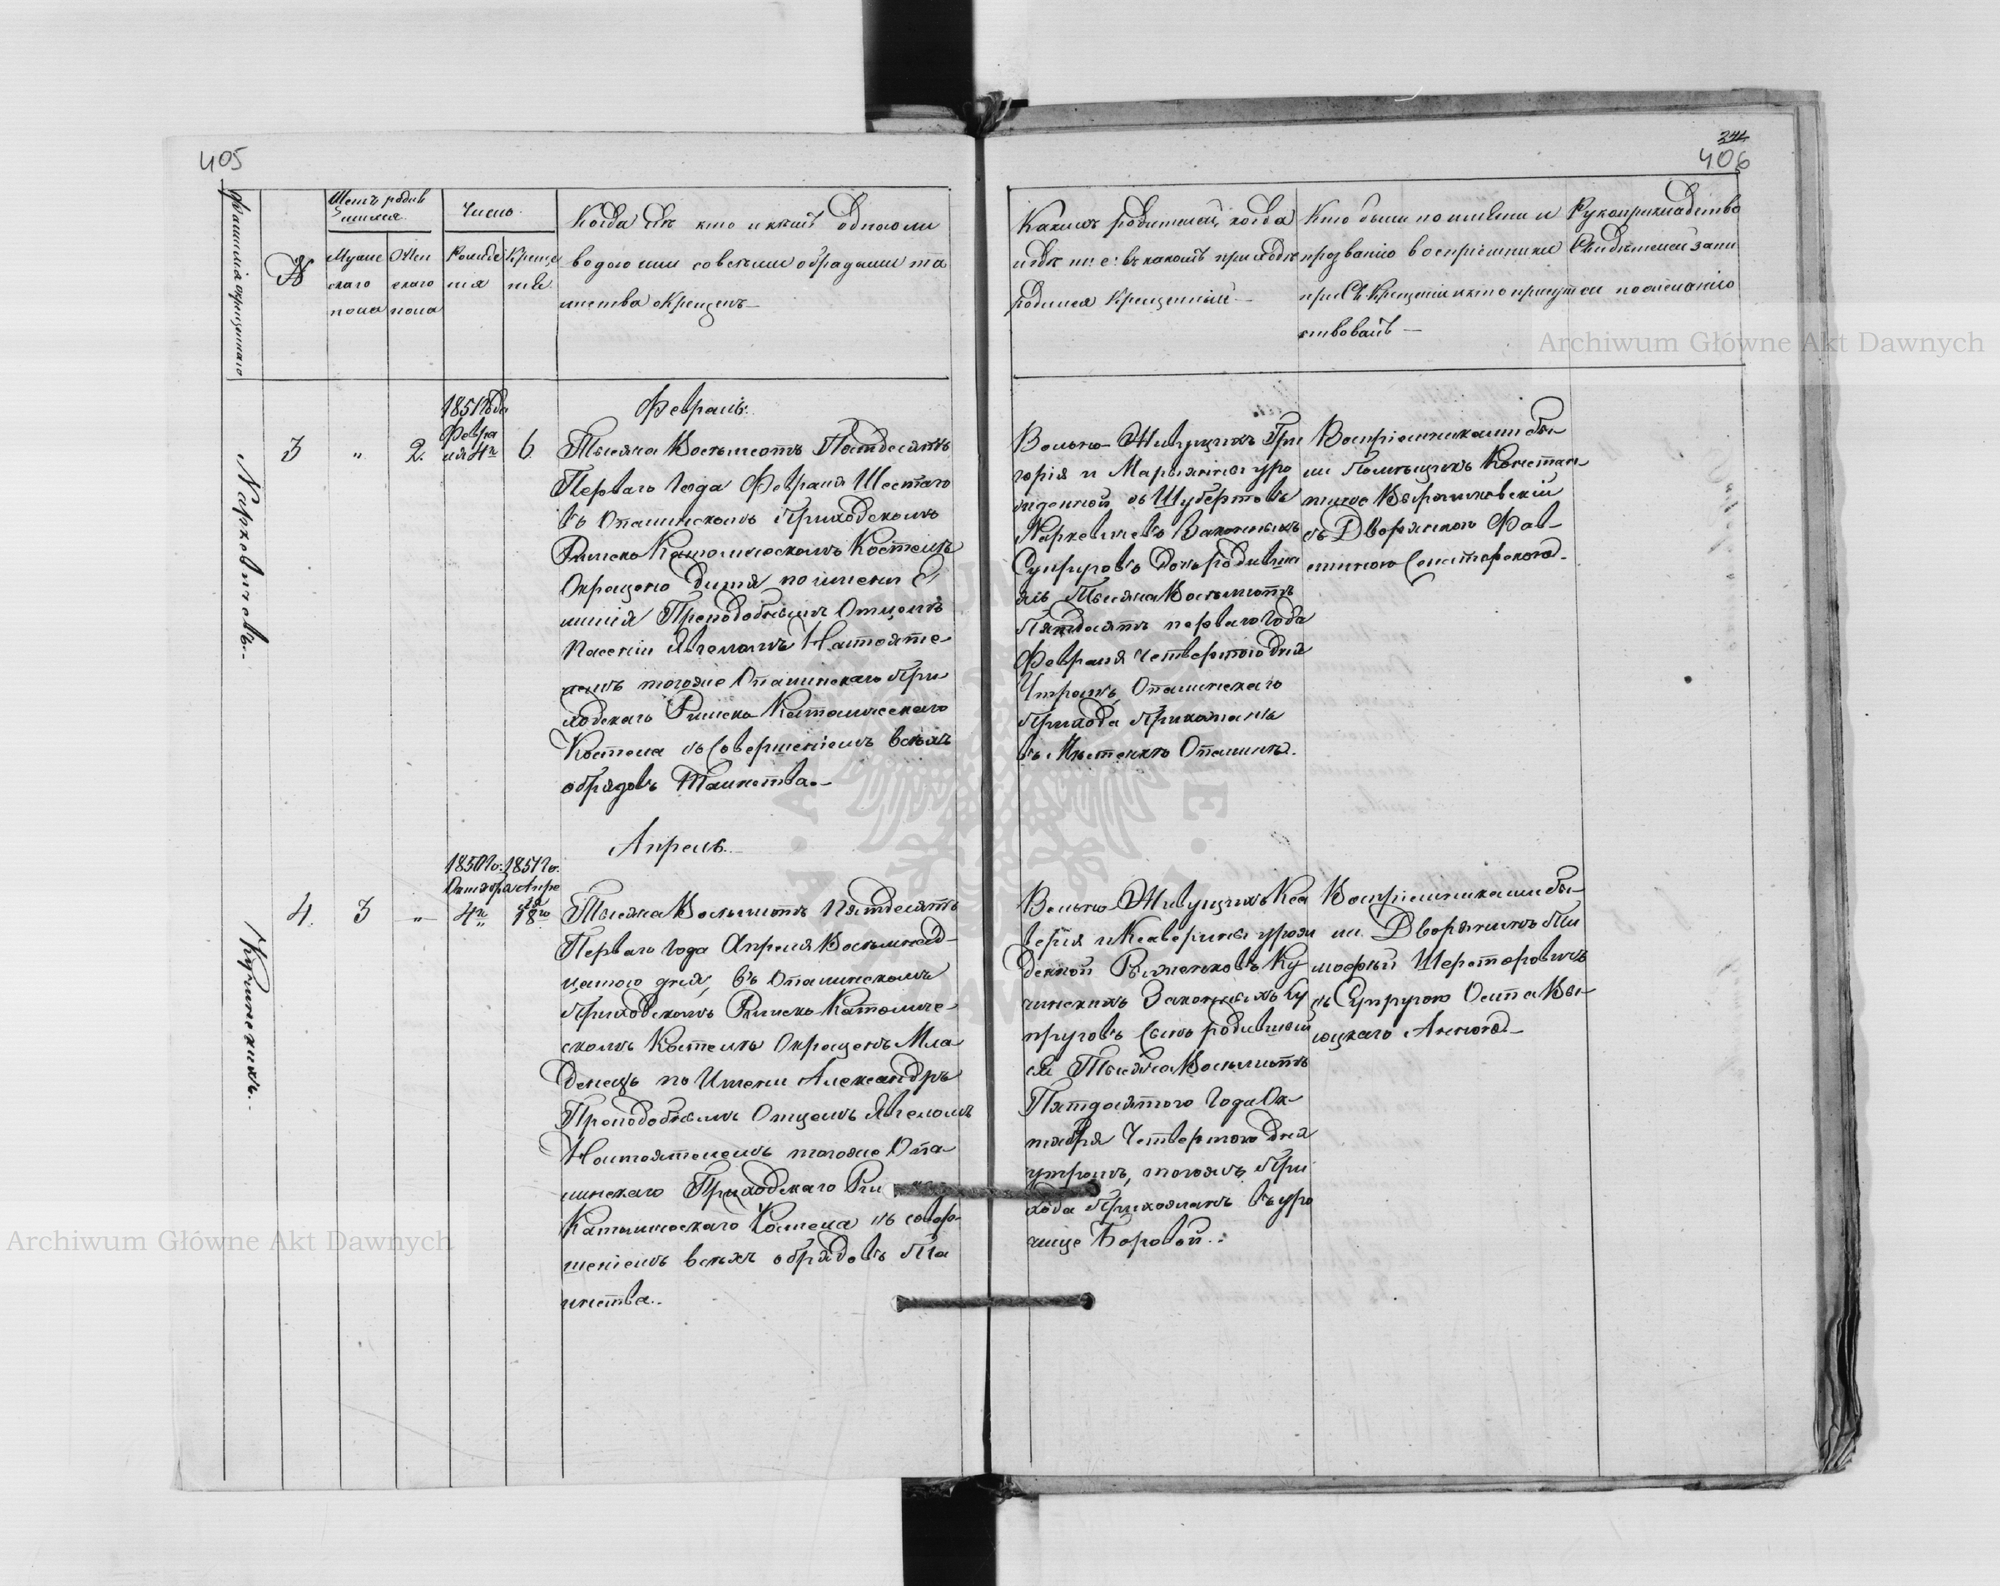 405
Фамилія окрещеннаго
№
Щетъ родив
шихся
Мужес
каго
пола
Жен
скаго
пола
Число
Рожде
нія
Креще
нія
Когда гдѣ кто и какій одною ли
водою или со всѣми обрядами та
инства окрещенъ
Наркевичевъ
3
"
2.
1851 Года
Февра
ля 4го
6
Февраль
Тысяча Восьмьсотъ Пятдесятъ
Перваго Года Февраля Шестаго
въ Опалинскомъ Приходскомъ
Римско Католическомъ Костелѣ
Окрещено Дитя по имени Э
милія Преподобнымъ Отцомъ
Настояте
лемъ тогоже Опалинскаго При
ходскаго Римско Католическаго
Костела съ Совершеніемъ всѣхъ
обрядовъ Таинства.
Апрель
Кучинскихъ
4.
3
"
1850 Го.
Октября
4го
1851 Го.
Апре
ля
18го
Тысяча Восьмьсотъ Пятдесятъ
Перваго Года Апреля Восьмнад-
цатого дня, въ Опалинскомъ
Приходскомъ Римско Католиче-
скомъ Костелѣ Окрещенъ Мла
денецъ по Имени Александръ
Преподобнымъ Отцемъ
Настоятелемъ тогоже Опа
линскаго Приходскаго Рим
Католическаго Костела съ совер-
шеніемъ всѣхъ обрядовъ Та
инства.
406
Какихъ родителей, когда
и гдѣ т: е: въ какомъ приходѣ
родился Крещенный
Кто были по имени и
прозванію воспріемники
при Св. Крещеніи и кто присут
ствовалъ
Рукоприкладство
Свидѣтелей запи
си по желанію
Вольно Живущихъ Гри
горія и Маріянны уро
жденной съ Шубертовъ
Наркевичевъ Законныхъ
Супруговъ Дочь родивша
яся Тысяча Восьмьсотъ
Пятдесятъ перваго Года
Февраля Четвертого Дня
Утромъ, Опалинскаго
Прихода Прихожанъ
въ Мѣстечкѣ Опалинѣ.
Воспріемниками бы-
ли Помѣщикъ Констан-
тинъ
съ Дворянкою Фав-
стиною Сенаторскою.
Вольно Живущихъ Кса
верія и Ксаверины урож
денной Ку
чинскихъ Законныхъ Су
пруговъ Сынъ родившій
ся Тысяча Восьмьсотъ
Пятдесятого Года Ок-
тября Четвертого Дня
утромъ, тогожъ При
хода Прихожанъ въ уро
чище Боровой.
Воспріемниками бы-
ли Дворянинъ Ти
мофѣй
съ Супругою Осипа Вы-
соцкаго Анною
Archiwum Główne Akt Dawnych
Archiwum Główne Akt Dawnych